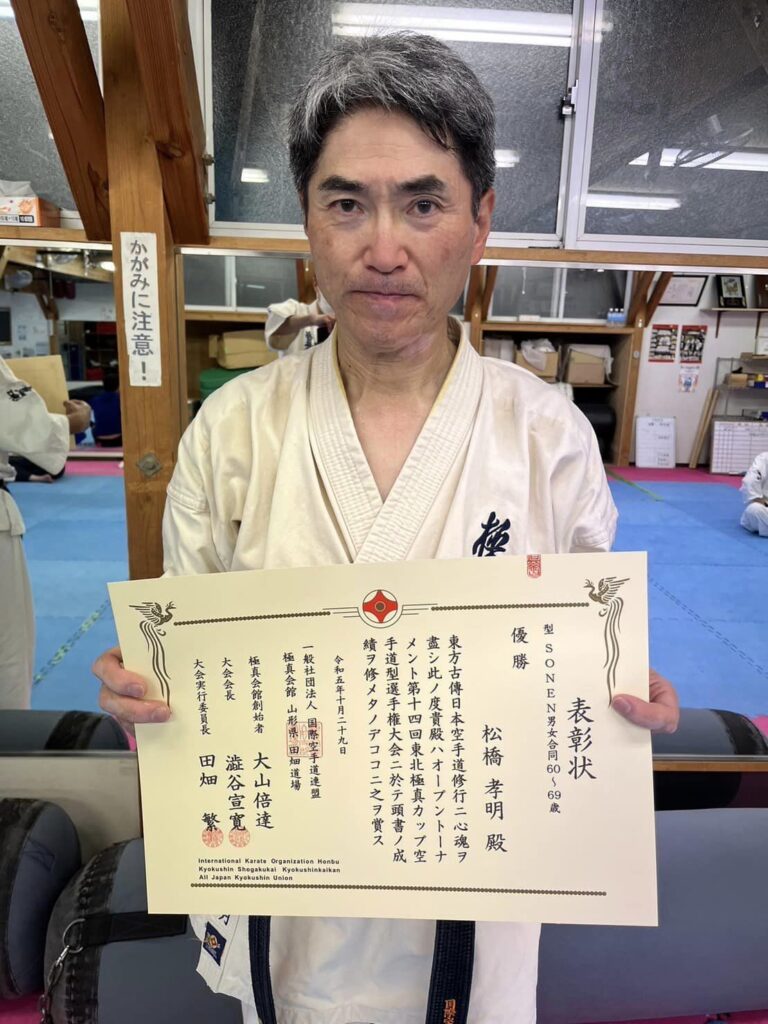 かがみに注意！
極
表彰状
型 SONEN男女合同60～69歳
優勝
松橋 孝明 殿
東方古傳日本空手道修行ニ心魂ヲ
盡シ此ノ度貴殿ハオープントーナ
メント第十四回東北極真カップ空
手道型選手権大会ニ於テ頭書ノ成
績ヲ修メタノデココニ之ヲ賞ス
令和五年十月二十九日
一般社団法人 国際空手道連盟
極真会館 山形県田畑道場
極真会館創始者 大山倍達
大会会長 澁谷宣寛
大会実行委員長 田畑 繁
International Karate Organization Honbu
Kyokushin Shogakukai Kyokushinkaikan
All Japan Kyokushin Union